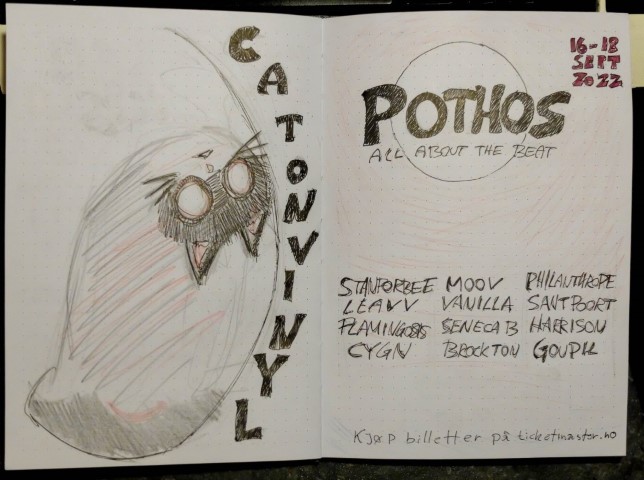 CATONVINYL
16-18
SEPT
2022
POTHOS
ALL ABOUT THE BEAT
STANFORBEE MOOV PHILANTHROPE
LEAVV VANILLA SANTPOORT
FLAMINGOSIS SENECA B HARRISON
CYGN BROCKTON GOUPIL
Kjøp billetter på ticketmaster.no